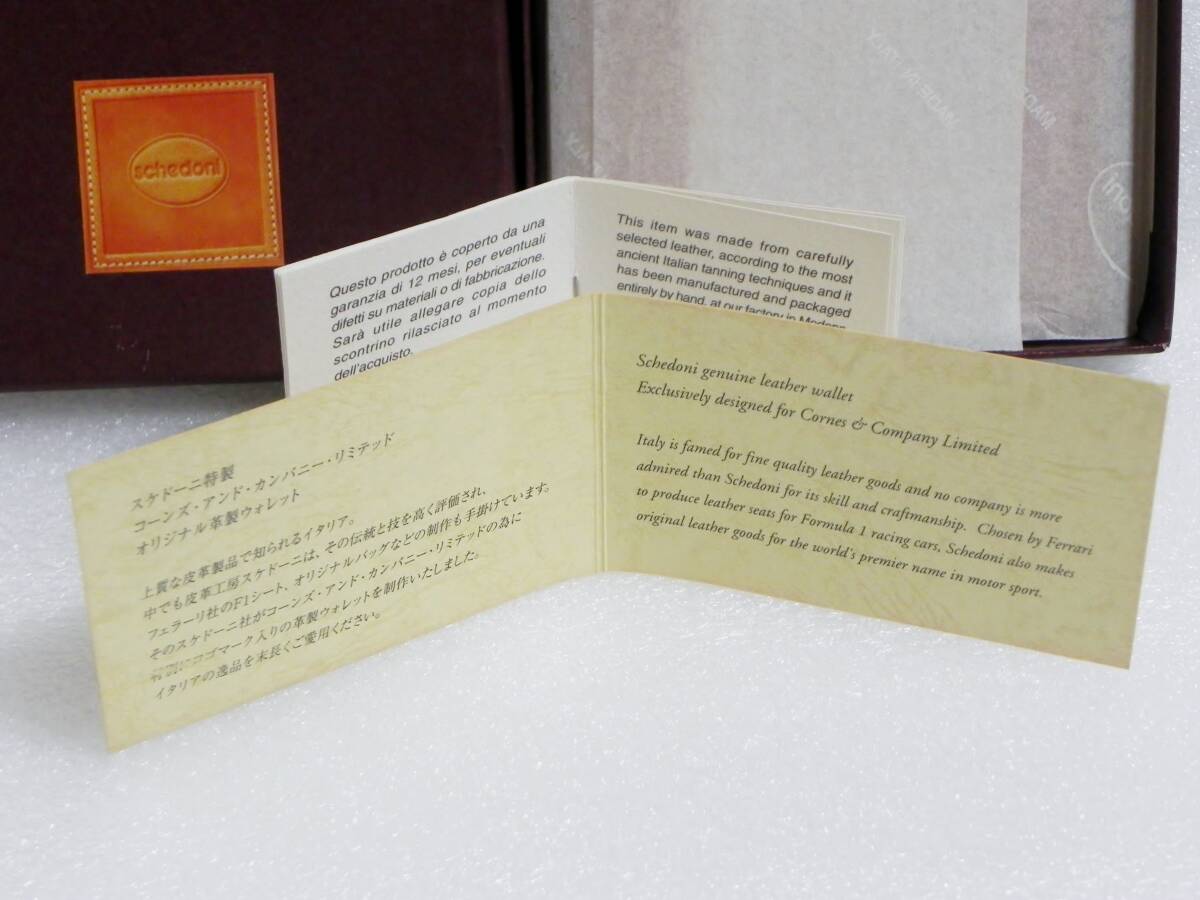 schedoni
MADE IN ITALY
Questo prodotto è coperto da una
garanzia di 12 mesi, per eventuali
difetti su materiali o di fabbricazione.
Sarà utile allegare copia dello
scontrino rilasciato al momento
dell'acquisto.
This item was made from carefully
selected leather, according to the most
ancient Italian tanning techniques and it
has been manufactured and packaged
entirely by hand, at our factory in Modena
スケドーニ特製
コーンズ・アンド・カンパニー・リミテッド
オリジナル革製ウォレット
上質な皮革製品で知られるイタリア。
中でも皮革工房スケドーニは、その伝統と技を高く評価され、
フェラーリ社のF1シート、オリジナルバッグなどの制作も手掛けています。
そのスケドーニ社がコーンズ・アンド・カンパニー・リミテッドの為に
特別にロゴマーク入りの革製ウォレットを制作いたしました。
イタリアの逸品を末長くご愛用ください。
Schedoni genuine leather wallet
Exclusively designed for Cornes & Company Limited
Italy is famed for fine quality leather goods and no company is more
admired than Schedoni for its skill and craftmanship. Chosen by Ferrari
to produce leather seats for Formula 1 racing cars, Schedoni also makes
original leather goods for the world's premier name in motor sport.